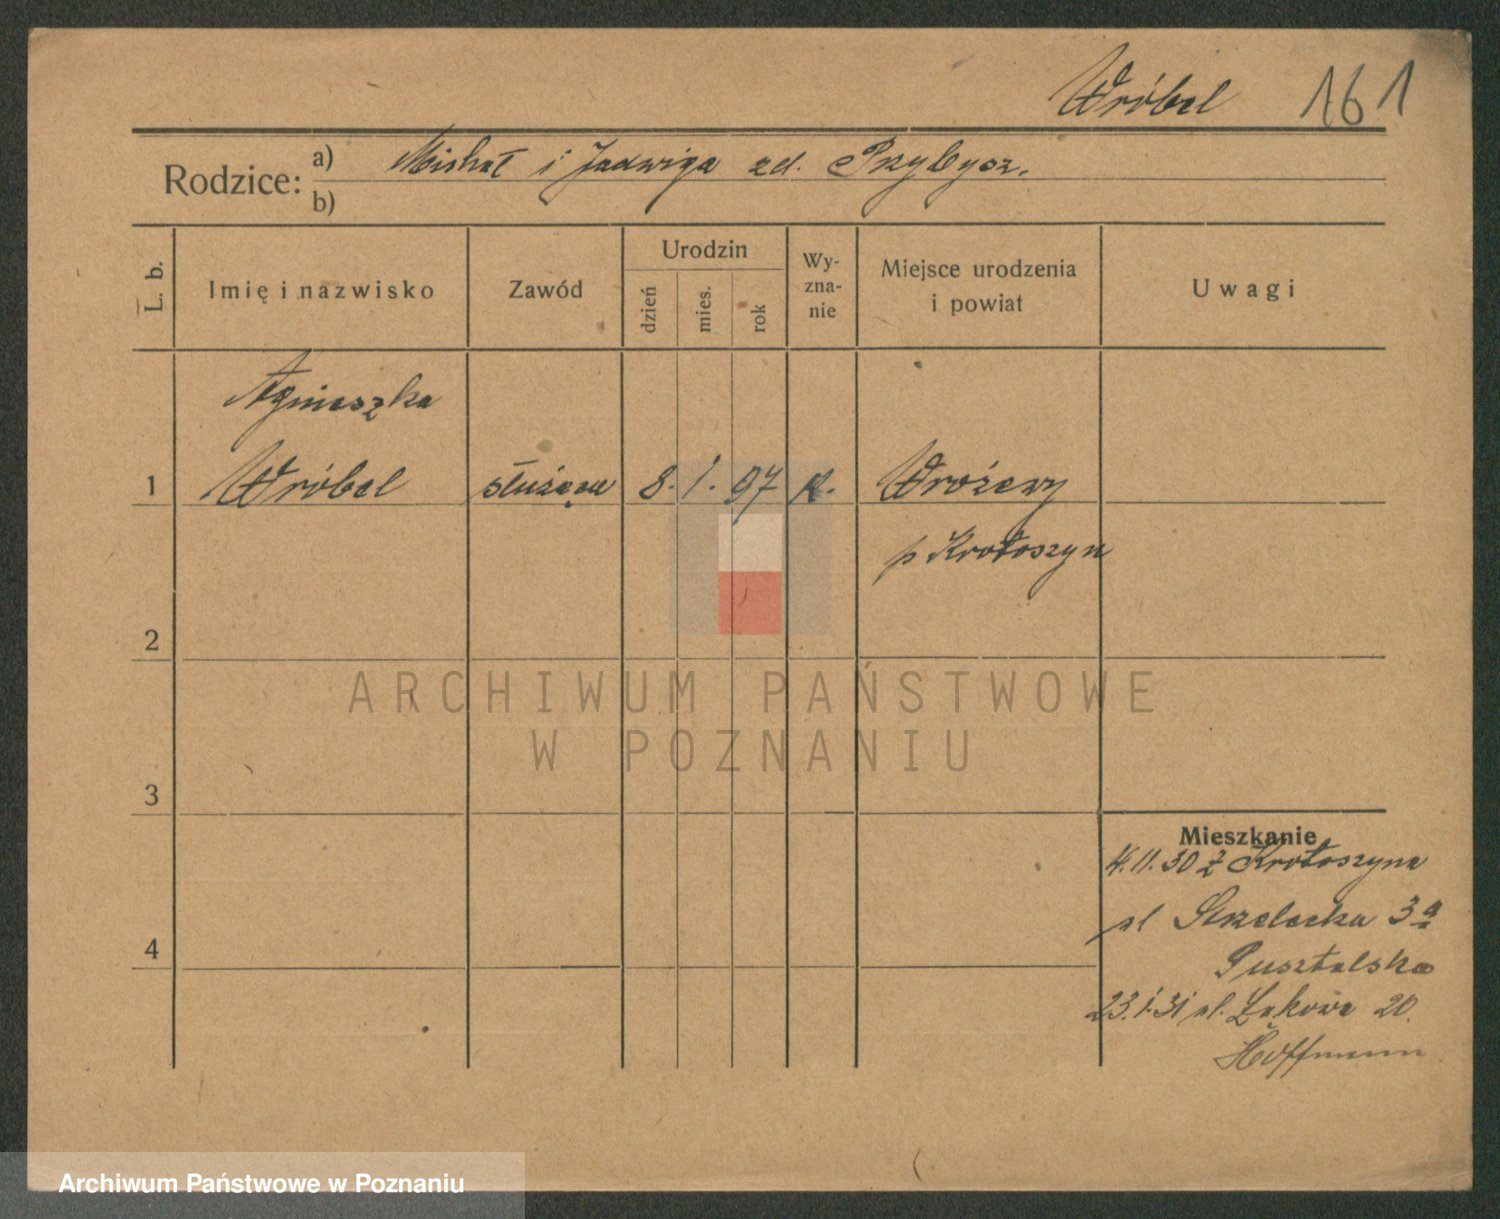 Wróbel 161
Rodzice: a) Michał i Jadwiga zd. Przybysz.
b)
L. b.
Imię i nazwisko
Zawód
Urodzin
dzień
mies.
rok
Wy-
zna-
nie
Miejsce urodzenia
i powiat
Uwagi
Agnieszka
1 Wróbel służąca 8. 1. 97 k. Wróżewy
p Krotoszyn
2
3
4
Mieszkanie
4.11.30 z Krotoszyna
ul Strzelecka 3a
Pusztalska
23.1.31 ul. Łąkowa 20.
Hoffmann
ARCHIWUM PAŃSTWOWE
W POZNANIU
Archiwum Państwowe w Poznaniu